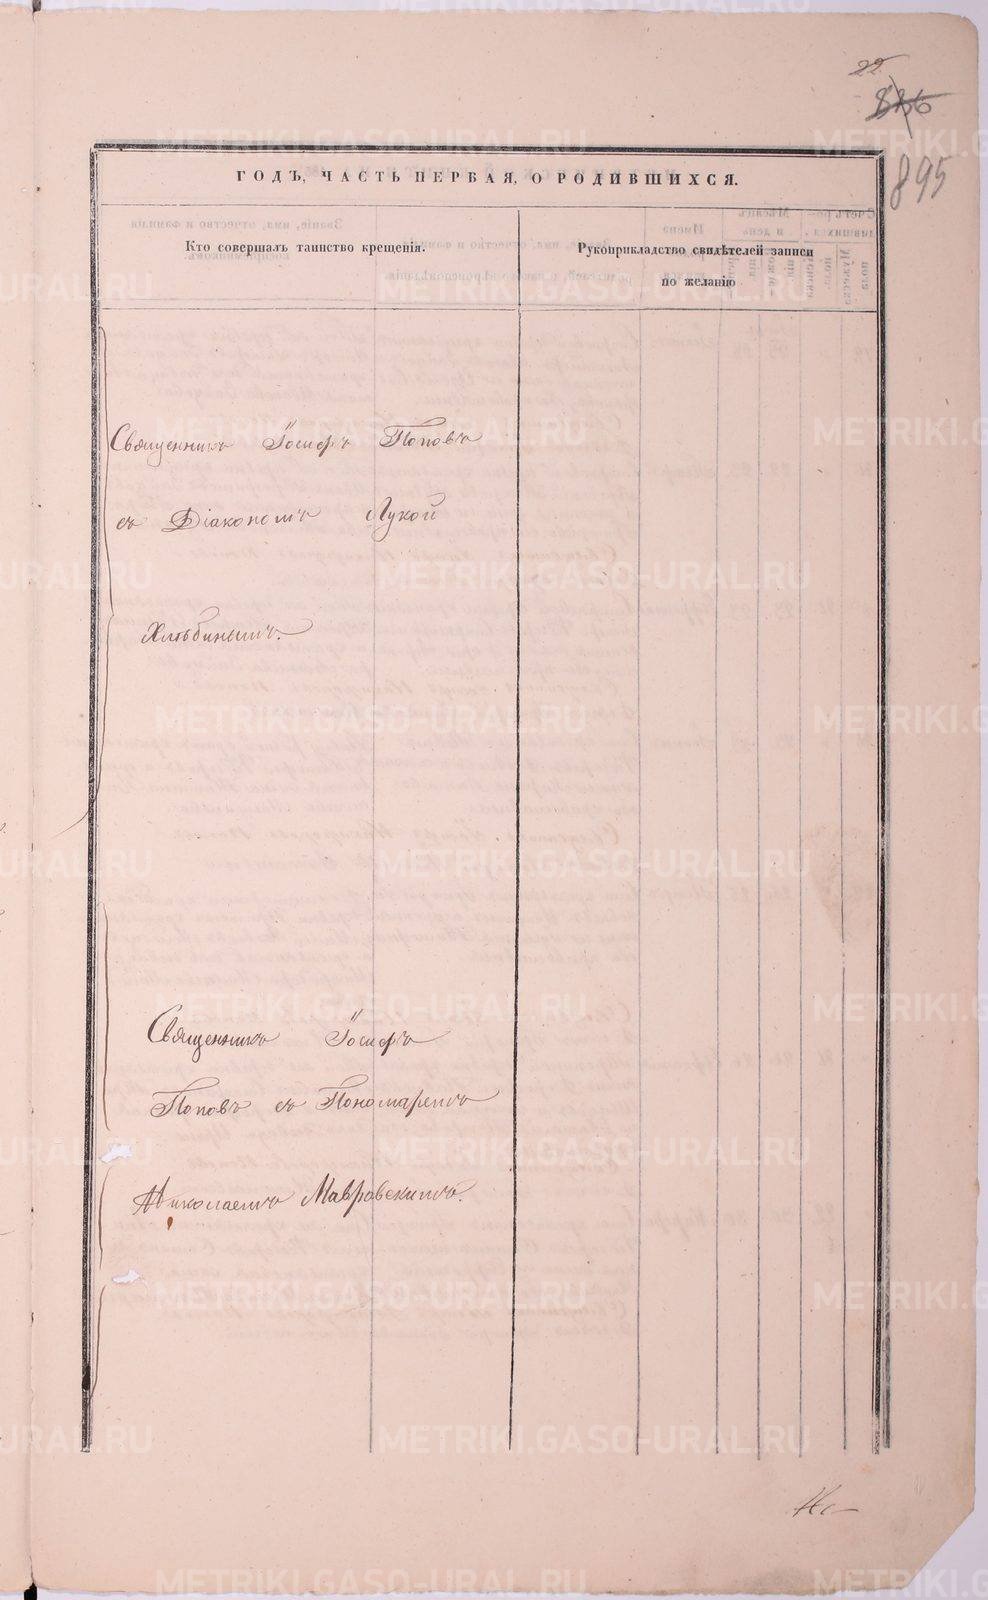 22.
836
895
ГОДЪ, ЧАСТЬ ПЕРВАЯ, О РОДИВШИХСЯ.
Кто совершалъ таинство крещенія.
Рукоприкладство свидѣтелей записи
по желанію
Священникъ Іосифъ Поповъ
съ Діакономъ Лукой
Хлѣбинымъ.
Священникъ Іосифъ
Поповъ съ Пономаремъ
Николаемъ Мавровскимъ.
METRIKI.GASO-URAL.RU